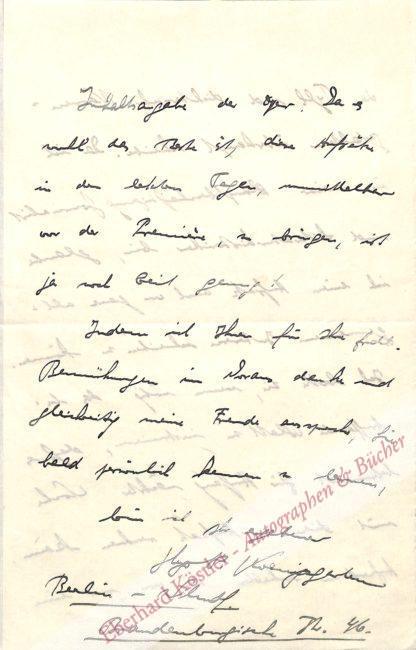 Inhaltsangabe der Oper. Da es
wohl das Beste ist, diese Aufsätze
in den letzten Tagen, unmittelbar
vor der Première, zu bringen, ist
ja noch Zeit genug!
Indem ich Ihnen für Ihre frdl.
Bemühungen im Voraus danke und
gleichzeitig meine Freude ausspreche, Sie
bald persönlich kennen zu lernen,
bin ich Ihr ergebener
Berlin -
Brandenburgische Str. 46.
Eberhard Köstler - Autographen & Bücher